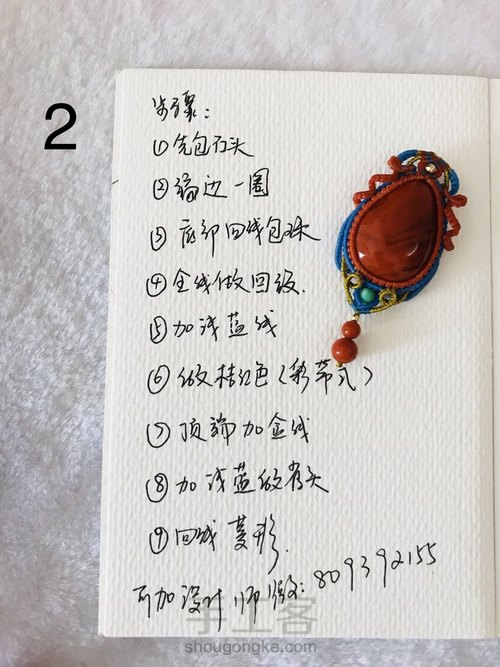 2
步骤:
①先包石头
②编边一圈
③底部回线包珠
④金线做回纹.
⑤加浅蓝线
⑥做桔红色(彩带式)
⑦顶端加金线
⑧加浅蓝做肩头
⑨回线菱形.
可加设计师微:809392155
手工客
shougongke.com